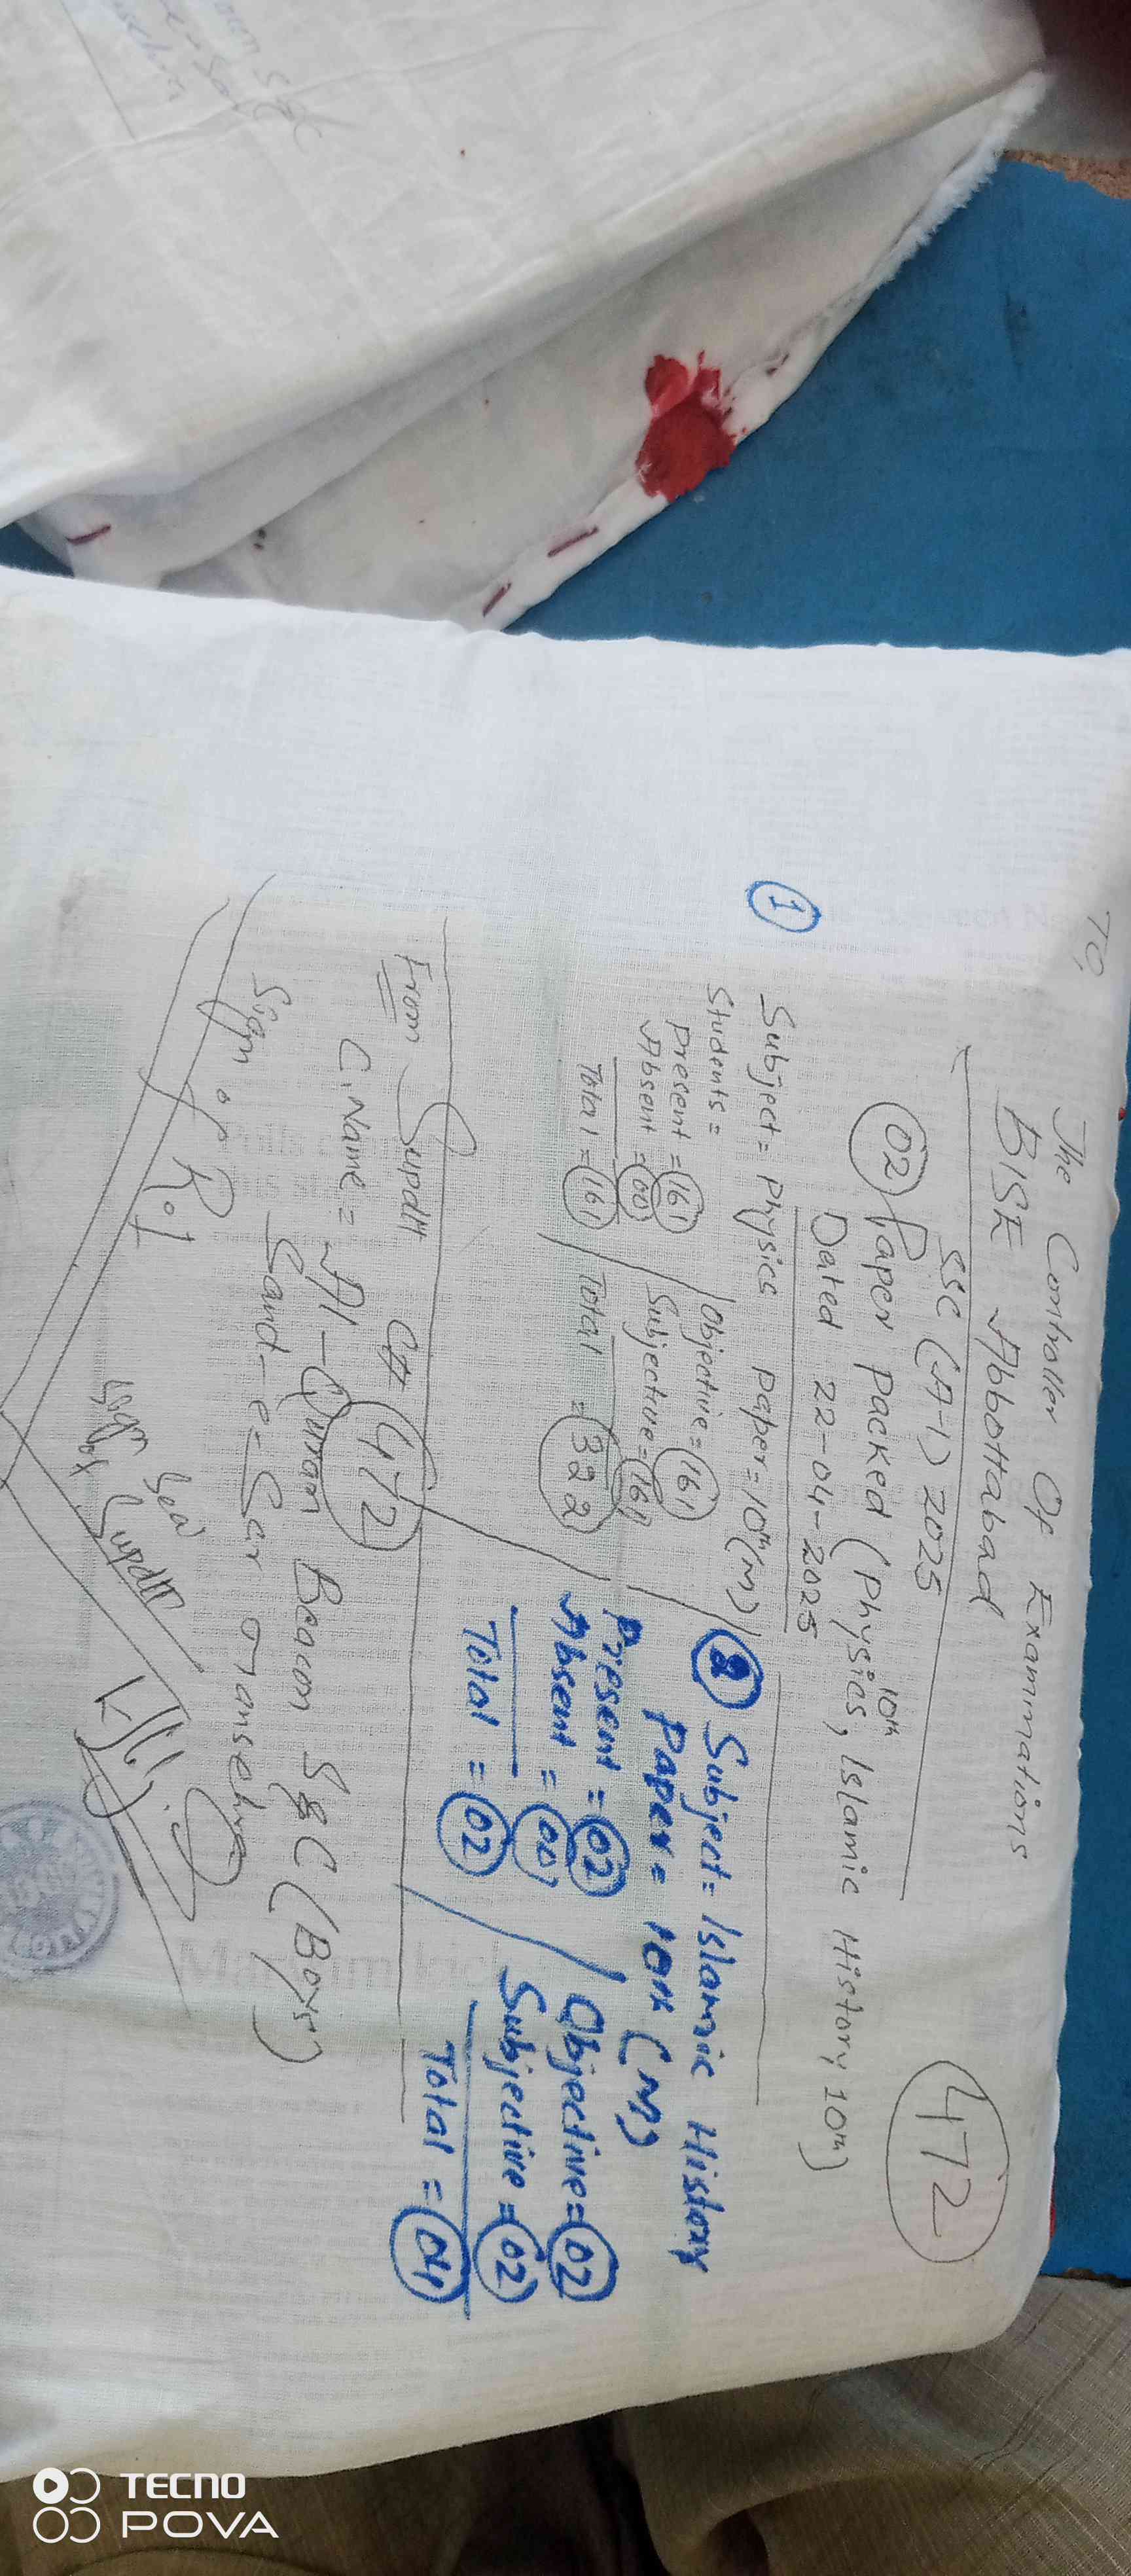 To,
The Controller Of Exammations
BISE Abbottabad
472
SSC (A-1) 2025
02 Paper packed (Physics, 10th Islamic History 10th)
Dated 22-04-2025
1
Subject = Physics paper = 10th (M)
Students =
present = 161
Absent = 00
Total = 161
Objective = 161
Subjective = 161
Total = 322
2 Subject = Islamic History
Paper = 10th (M)
Present = 02
Absent = 00
Total = 02
Objective = 02
Subjective = 02
Total = 04
From Supdtt C# 472
C.Name = Al-Quran Beacon S&C (Boys)
Sand-e-Sar Mansehra
Sign of R.I
Supdtt
TECNO
POVA